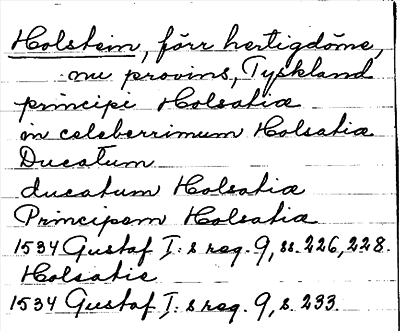 Holstein, förr hertigdöme,
nu provins, Tyskland
principi Holsatiæ
in celeberrimum Holsatiæ
Ducatum
ducatum Holsatiæ
Principem Holsatiæ
1534 Gustaf I:s reg. 9, ss. 226, 228.
Holsatie
1534 Gustaf I:s reg. 9, s. 233.